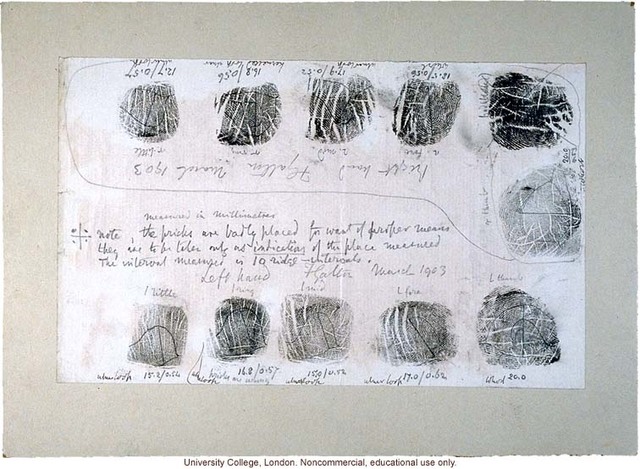 12.7/0.57
16.8/0.56
17.9/0.52
12.5/0.56
r. little
r. ring
r. fore
r thumb
20.0
Right hand F Galton March 1903
measured in millimetres
note the pricks are badly placed for want of proper means
they are to be taken only as indications of the place measured
The interval measured is 10 ridge-intervals.
Left hand F Galton March 1903
l little
l ring
l mid
l fore
L thumb
ulnar loop 15.2/0.54
loop 16.8/0.57
ulnar loop 15.0/0.52
ulnar loop 17.0/0.62
whorl 20.0
University College, London. Noncommercial, educational use only.